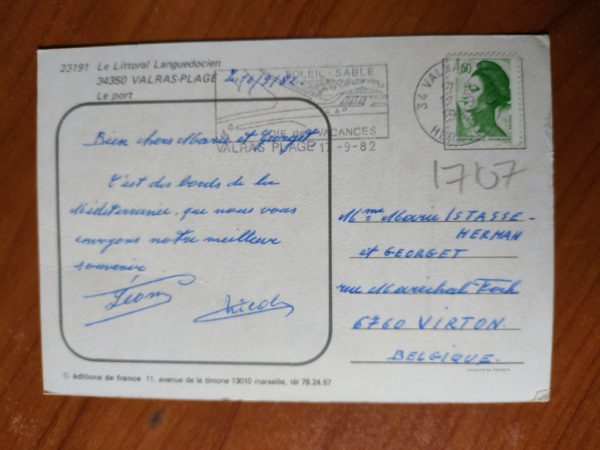 23191 Le Littoral Languedocien
34350 VALRAS-PLAGE
Le port
SOLEIL - SABLE
JOIE des VACANCES
VALRAS PLAGE 17-9-82
34 VALRAS
1,60
REPUBLIQUE FRANÇAISE
1707
Bien chers Marie et Georget,
C'est des bords de la
Méditerranée, que nous vous
envoyons notre meilleur
souvenir
Léon
Nicole
Mme Marie ISTASSE-
HERMAN
et GEORGET
rue Maréchal Foch
6760 VIRTON.
BELGIQUE.
© éditions de france 11, avenue de la timone 13010 marseille, tél 79.24.57